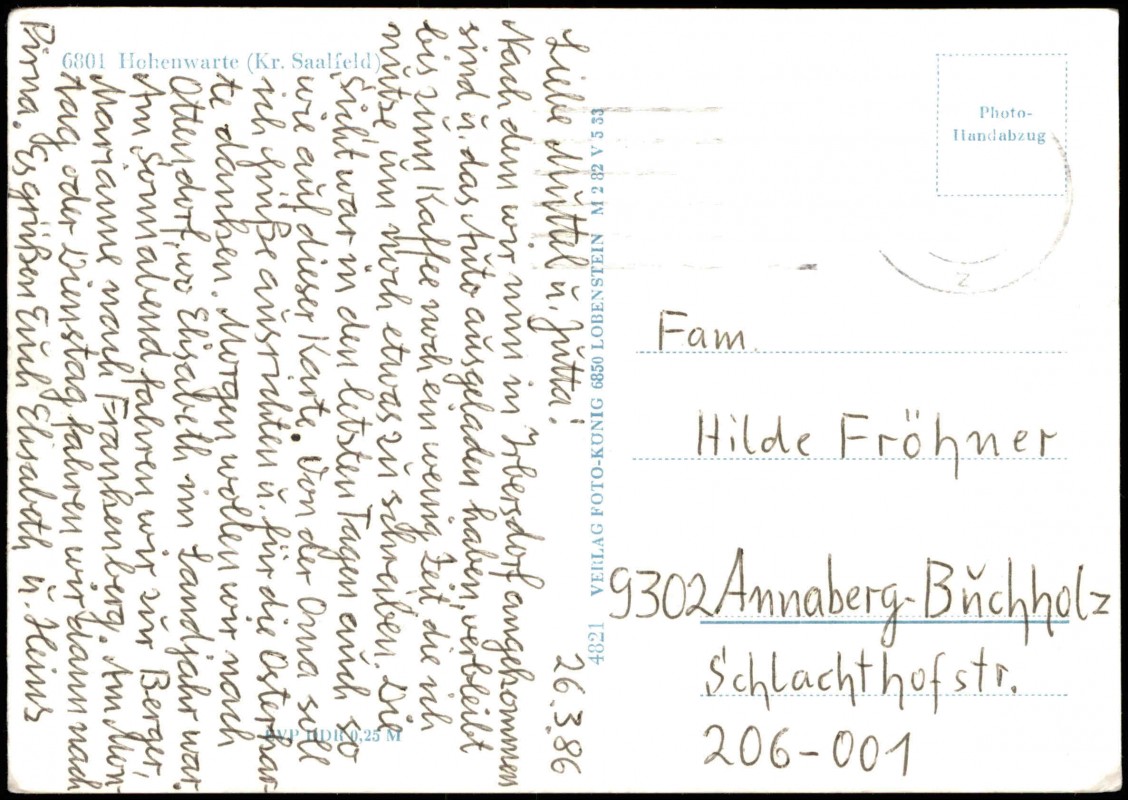 6801 Hohenwarte (Kr. Saalfeld)
26.3.86
Liebe Muttel u. Jutta!
Nach dem wir nun in Ebersdorf angekommen
sind u. das Auto ausgeladen haben, verbleibt
bis zum Kaffee noch ein wenig Zeit, die ich
nutze um noch etwas zu schreiben. Die
Sicht war in den letsten Tagen auch so
wie auf dieser Karte. Von der Oma soll
ich Grüße ausrichten u. für die Osterkar-
te danken. Morgen wollen wir nach
Ottendorf, wo Elisabeth im Landjahr war.
Am Sonnabend fahren wir zur Berger,
Marianne nach Frankenberg. Am Mon-
tag oder Dienstag fahren wir dann nach
Pirna. Es grüßen Euch Elisabeth u. Heinz
EVP DDR 0,25 M
4821 VERLAG FOTO-KÖNIG 6850 LOBENSTEIN M 2 82 V 5 33
Photo-
Handabzug
z
Fam.
Hilde Fröhner
9302 Annaberg-Buchholz
Schlachthofstr.
206-001